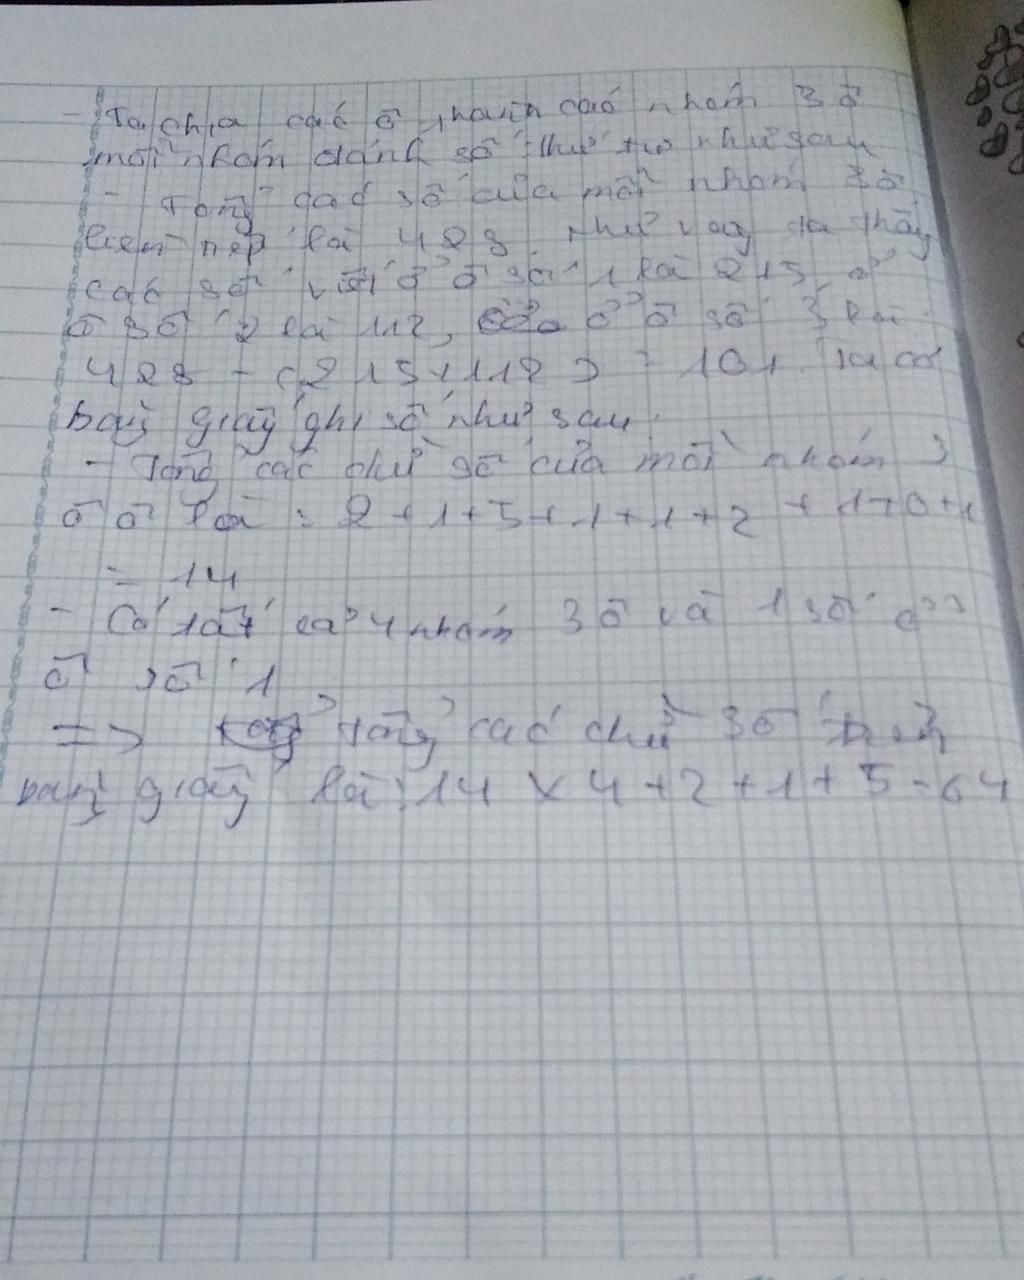 - Ta chia các ô thành các nhóm 3 ô
mỗi nhóm đánh số thứ tự như sau
- Tổng các số của mỗi nhóm 3 ô
liên tiếp là 428. Như vậy ta thấy
các số viết ở ô số 1 là 215, ở
ô số 2 là 112, ở ô số 3 là
428 - (215+112) = 101. Ta có
băng giấy ghi số như sau.
- Tổng các chữ số của mỗi nhóm 3
ô ô là : 2+1+5+1+1+2+1+0+1
= 14
- Có tất cả 4 nhóm 3 ô và 1 số ở
ô số 1
=> tổng các chữ số trên
băng giấy là: 14 x 4+2+1+5=64